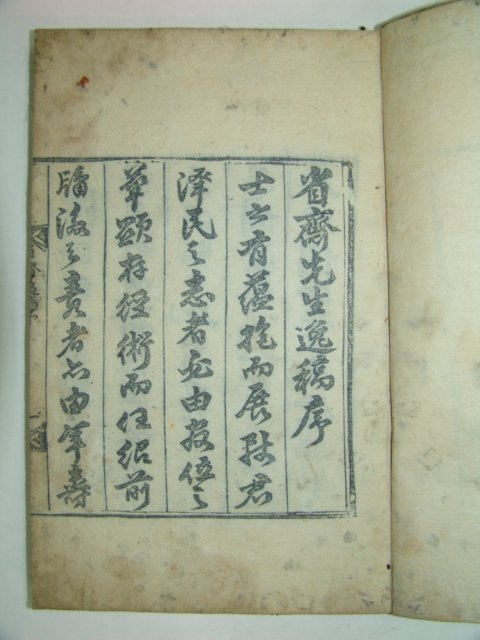 省齋先生逸稿序
士之有蘊抱而展致君
澤民之志者必由投位之
華顯存經術而任紹前
牖後之責者亦由年壽